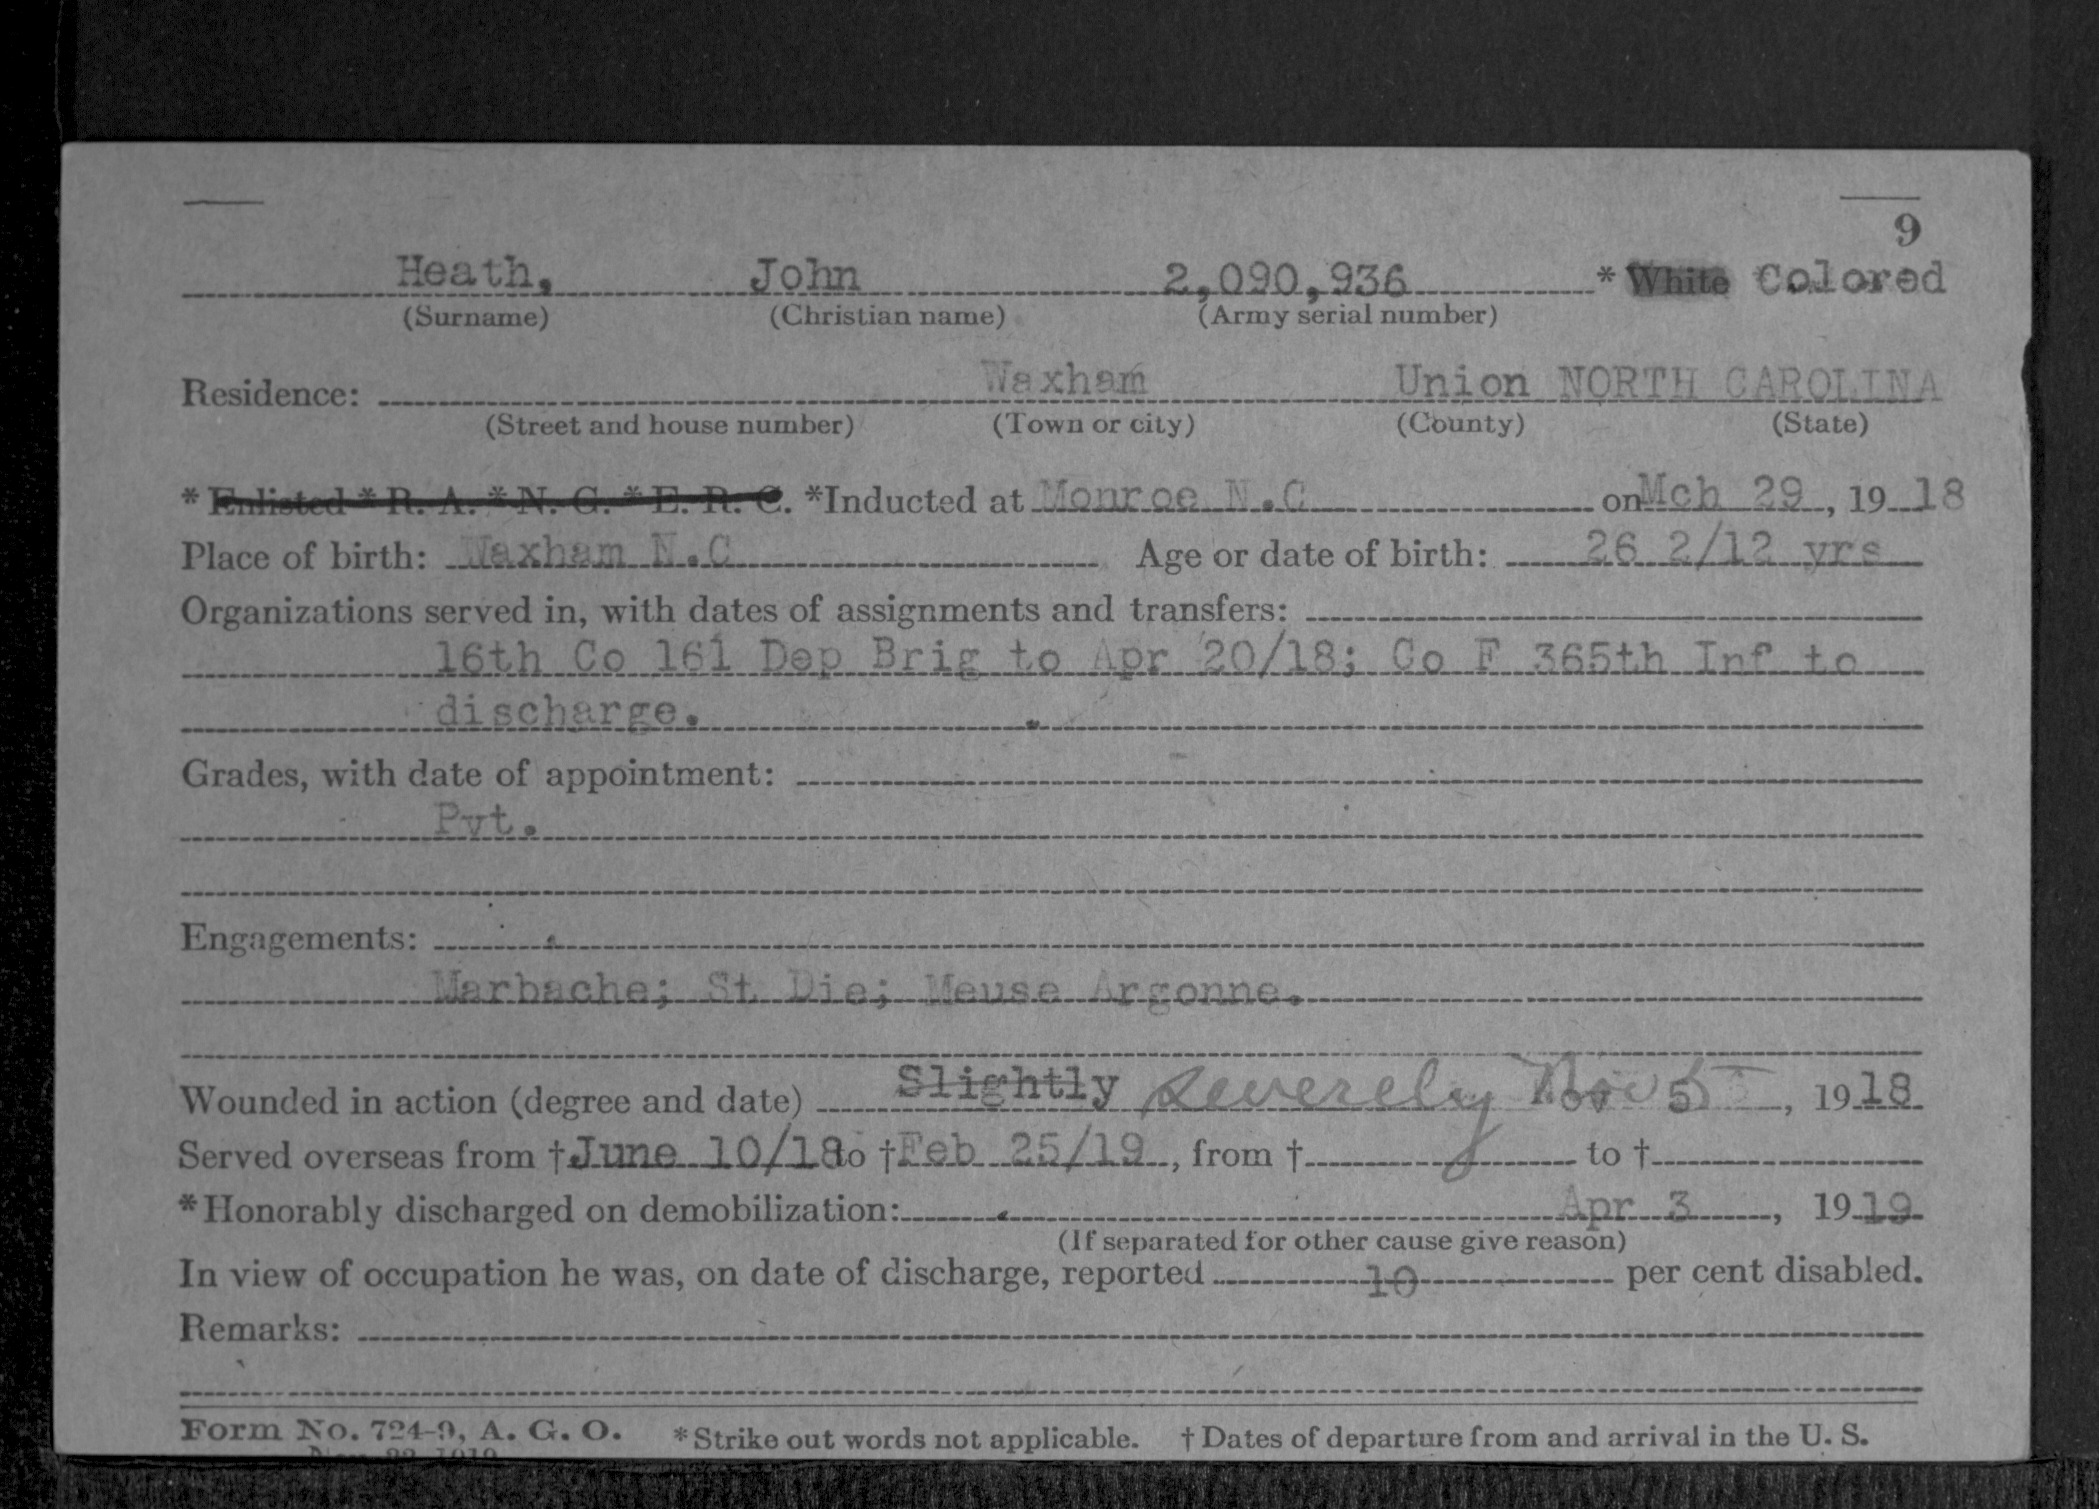 9
Heath, John 2,090,936 * White Colored
(Surname) (Christian name) (Army serial number)
Waxham Union NORTH CAROLINA
Residence:
(Street and house number) (Town or city) (County) (State)
* Enlisted * R. A. * N. G. * E. R. C. *Inducted at Monroe N.C on Mch 29, 19 18
Place of birth: Waxham N.C Age or date of birth: 26 2/12 yrs
Organizations served in, with dates of assignments and transfers:
16th Co 161 Dep Brig to Apr 20/18; Co F 365th Inf to
discharge.
Grades, with date of appointment:
Pvt.
Engagements:
Marbache; St Die; Meuse Argonne.
Wounded in action (degree and date) Slightly severely Nov 5, 1918
Served overseas from † June 10/18 to † Feb 25/19, from † to †
*Honorably discharged on demobilization: Apr 3, 1919
(If separated for other cause give reason)
In view of occupation he was, on date of discharge, reported 10 per cent disabled.
Remarks:
Form No. 724-9, A. G. O. *Strike out words not applicable. † Dates of departure from and arrival in the U. S.